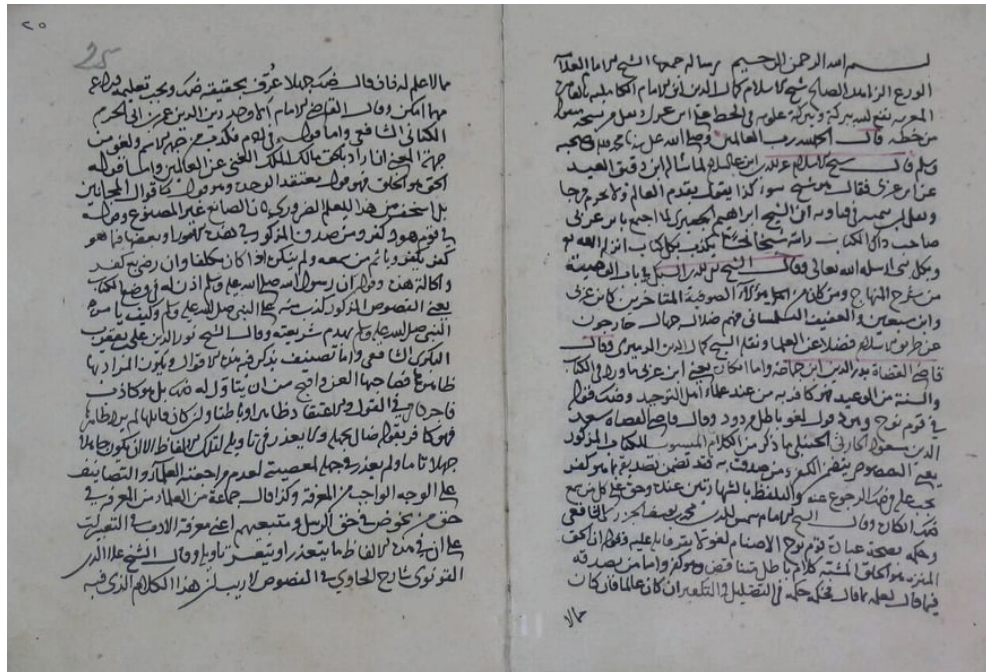 بسم الله الرحمن الرحيم رسالة جمعها الشيخ الامام العلامة
الورع الزاهد الصالح شيخ الاسلام كمال الدين ابن امام الكاملية
نفع الله ببركته وبركة علومه في الحط على ابن عربي
من خطه قال الحمد لله رب العالمين وصلى الله على وصحبه
وسلم قال شيخ الاسلام عز الدين ابن عبد السلام لما سأله ابن دقيق العيد
عن ابن عربي فقال هو شيخ سوء كذاب يقول بقدم العالم ولا يحرم فرجا
ابن تيمية في فتاويه ان الشيخ ابراهيم الجعبري لما اجتمع بابن عربي
صاحب هذا الكتاب رأيته شيخا يكذب بكل كتاب انزله الله
وبكل نبي ارسله الله تعالى وقال الشيخ السبكي في باب الوصية
من شرح المنهاج ومن كان من هؤلاء الصوفية المتأخرين كابن عربي
وابن سبعين والعفيف التلمساني فهم ضلال جهال خارجون
عن طريق الاسلام فضلا عن العلماء ونقله الشيخ كمال الدين الدميري وقال
قاضي القضاة بدر الدين ابن جماعة واما انكاره يعني ابن عربي ما ورد في الكتاب
والسنة من الوعيد فهو كافر به من عند علماء اهل التوحيد وكذلك قوله
في قوم نوح وهود قول لغو باطل مردود وقال قاضي القضاة سعد
الدين مسعود الحارثي الحنبلي ما ذكر من الكلام المنسوب للكتاب المذكور
يعني الفصوص يتضمن الكفر ومن صدق به فقد تضمن تصديقه بما هو كفر
يجب عليه في ذلك الرجوع عنه والتلفظ بالشهادتين عنده وحق على كل من سمع
ذلك انكاره وقال الشيخ الامام شمس الدين محمد بن يوسف الجزري الشافعي
وحكمه بصحة عبادة قوم نوح الاصنام لغو لا يقر قائله عليه وقوله ان الحق
المنزه هو الخلق المشبه كلام باطل متناقض وهو كفر واما من يصدقه
فيما قال بعلمه بما قال فحكمه حكمه في التضليل والتكفير ان كان عالما فان كان
ممالا
٢٥
25
ممالا علم له فان قال ذلك جهلا عرف بحقيقة ذلك ويجب تعليمه
مهما امكن وقال القاضي الامام زين الدين عمر بن ابي الحرم
الكتاني الشافعي واما قوله في آدم فكذب من جهة الاسم ولغو من
جهة المعنى ان اراد به الحق مالك الملك الغني عن العالمين واما قوله
الحق هو الخلق فهو قول معتقد الوحدة وهو قول كاقوال المجانين
بل اسخف من هذا للعلم الضروري بان الصانع غير المصنوع وقوله
في قوم هود كفر ومن صدق المذكور في هذه الامور او بعضها مما هو
كفر يكفر ويأثم من سمعه ولم ينكره اذا كان مكلفا وان رضي به كفر
والحالة هذه وقوله ان رسول الله صلى الله عليه وسلم اذن له في وضع الكتاب
يعني الفصوص المذكور كذب منه على النبي صلى الله عليه وسلم وكيف يامره
النبي صلى الله عليه وسلم بهدم شريعته وقال الشيخ نور الدين علي بن يعقوب
البكري الشافعي واما تصنيف يذكر فيه هذه الاقوال ويكون المراد بها
ظاهرها فصاحبها العن واقبح من ان يتاول له ذلك بل هو كاذب
فاجر كافر في القول والاعتقاد ظاهرا وباطنا وان كان قائلها لم يرد ظاهرها
فهو كافر بقوله ضال بجهله ولا يعذر في تاويله لتلك الالفاظ الا ان يكون جاهلا
جهلا تاما ولم يعذر في جهله لمعصيته لعدم مراجعته العلماء والتصانيف
على الوجه الواجب من المعرفة وكذا قال جماعة من العلماء من المعرفة في
حق من يخوض في حق الرسل ومتبعيهم اعني معرفة الادب في التعبيرات
على ان في هذه الالفاظ ما يتعذر او يتعسر تاويله وقال الشيخ علاء الدين
القونوي شارح الحاوي في الفصوص لا ريب ان هذا الكلام الذي فيه